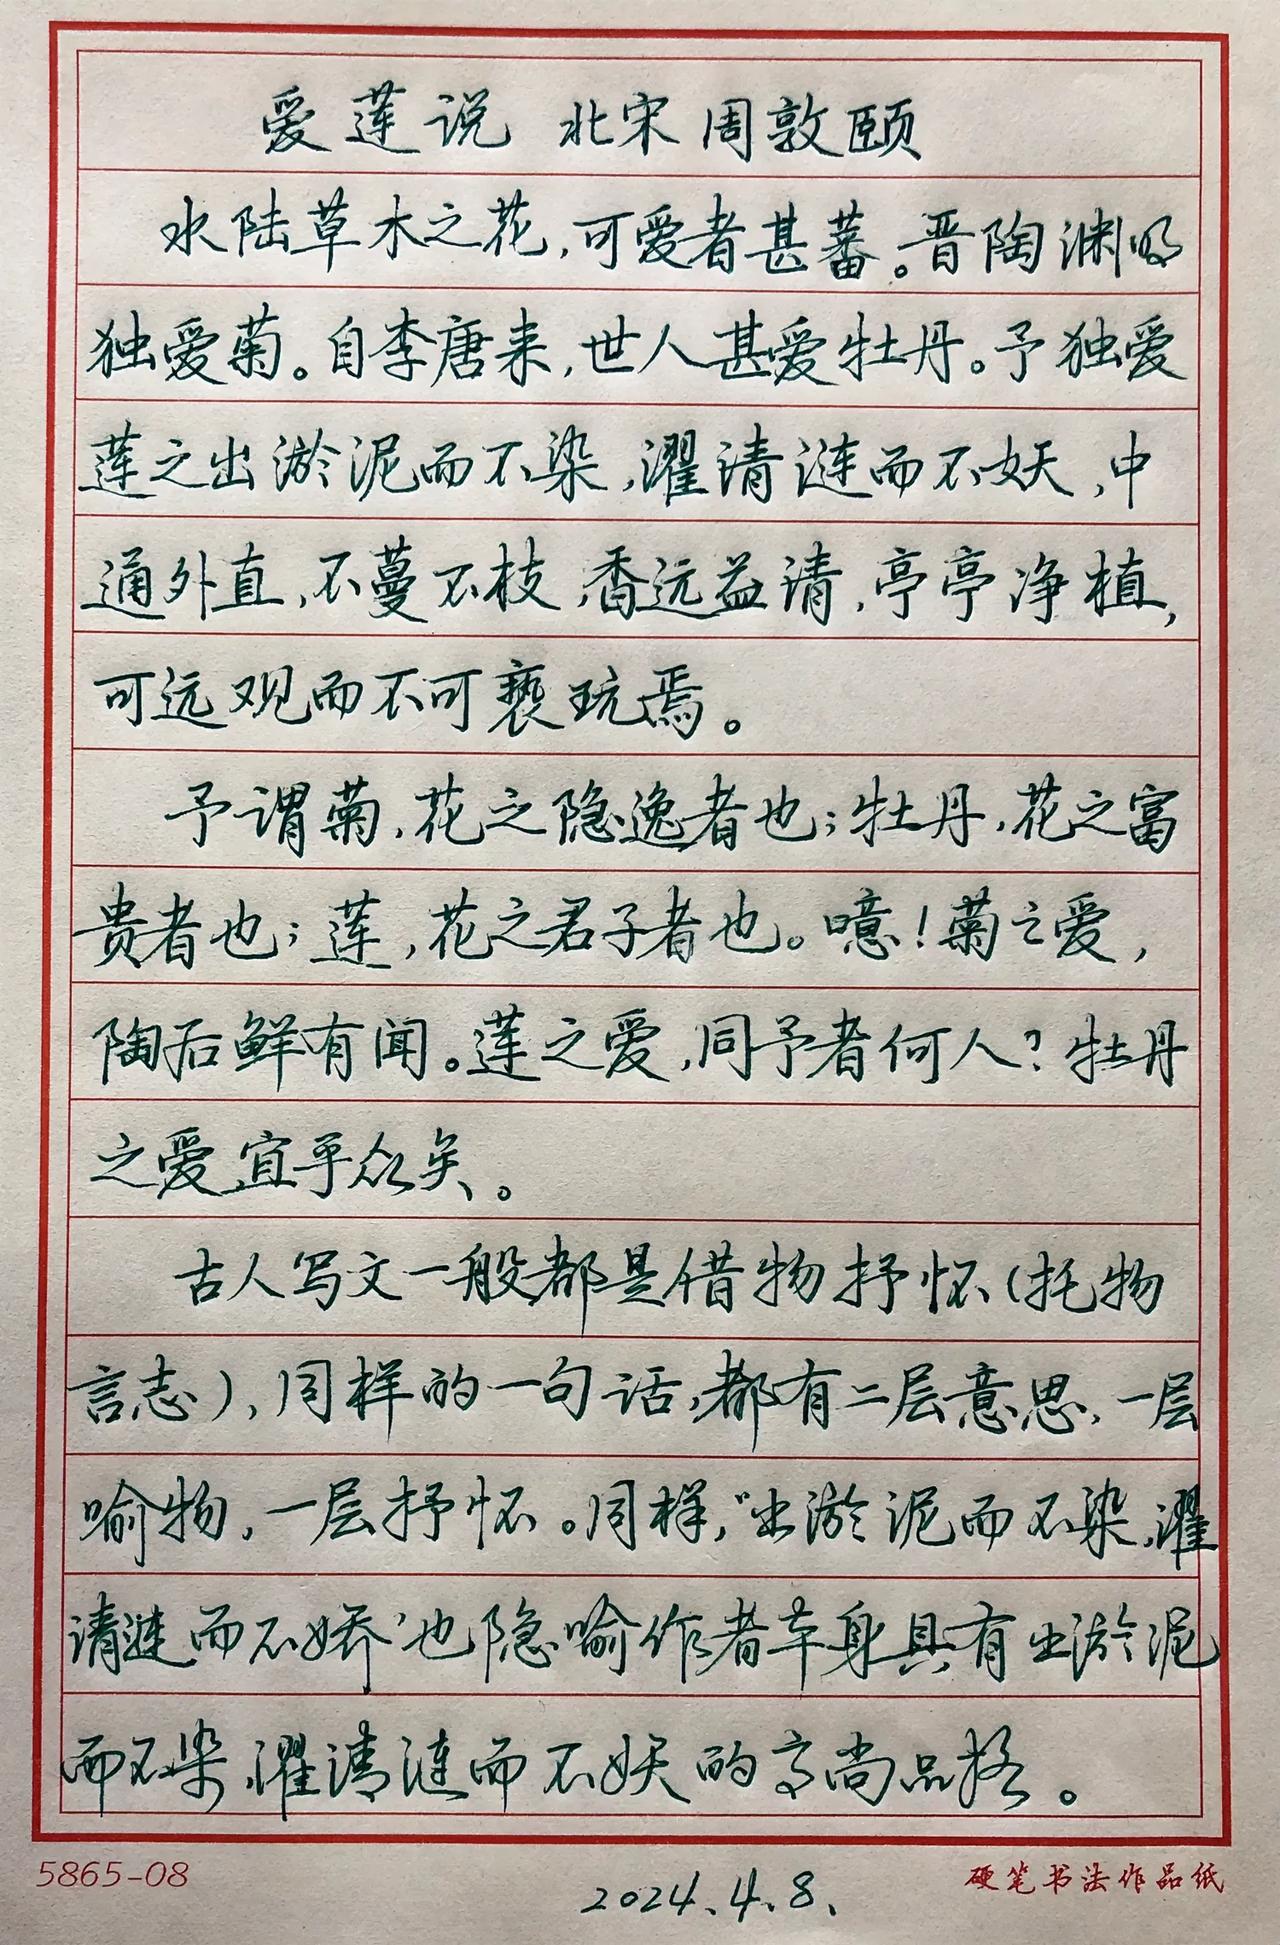 爱莲说 北宋 周敦颐
水陆草木之花,可爱者甚蕃。晋陶渊明
独爱菊。自李唐来,世人甚爱牡丹。予独爱
莲之出淤泥而不染,濯清涟而不妖,中
通外直,不蔓不枝,香远益清,亭亭净植,
可远观而不可亵玩焉。
予谓菊,花之隐逸者也;牡丹,花之富
贵者也;莲,花之君子者也。噫!菊之爱,
陶后鲜有闻。莲之爱,同予者何人?牡丹
之爱宜乎众矣。
古人写文一般都是借物抒怀(托物
言志),同样的一句话,都有二层意思,一层
喻物,一层抒怀。同样,“出淤泥而不染,濯
清涟而不娇”也隐喻作者本身具有出淤泥
而不染,濯清涟而不妖的高尚品格。
5865-08
硬笔书法作品纸
2024.4.8.